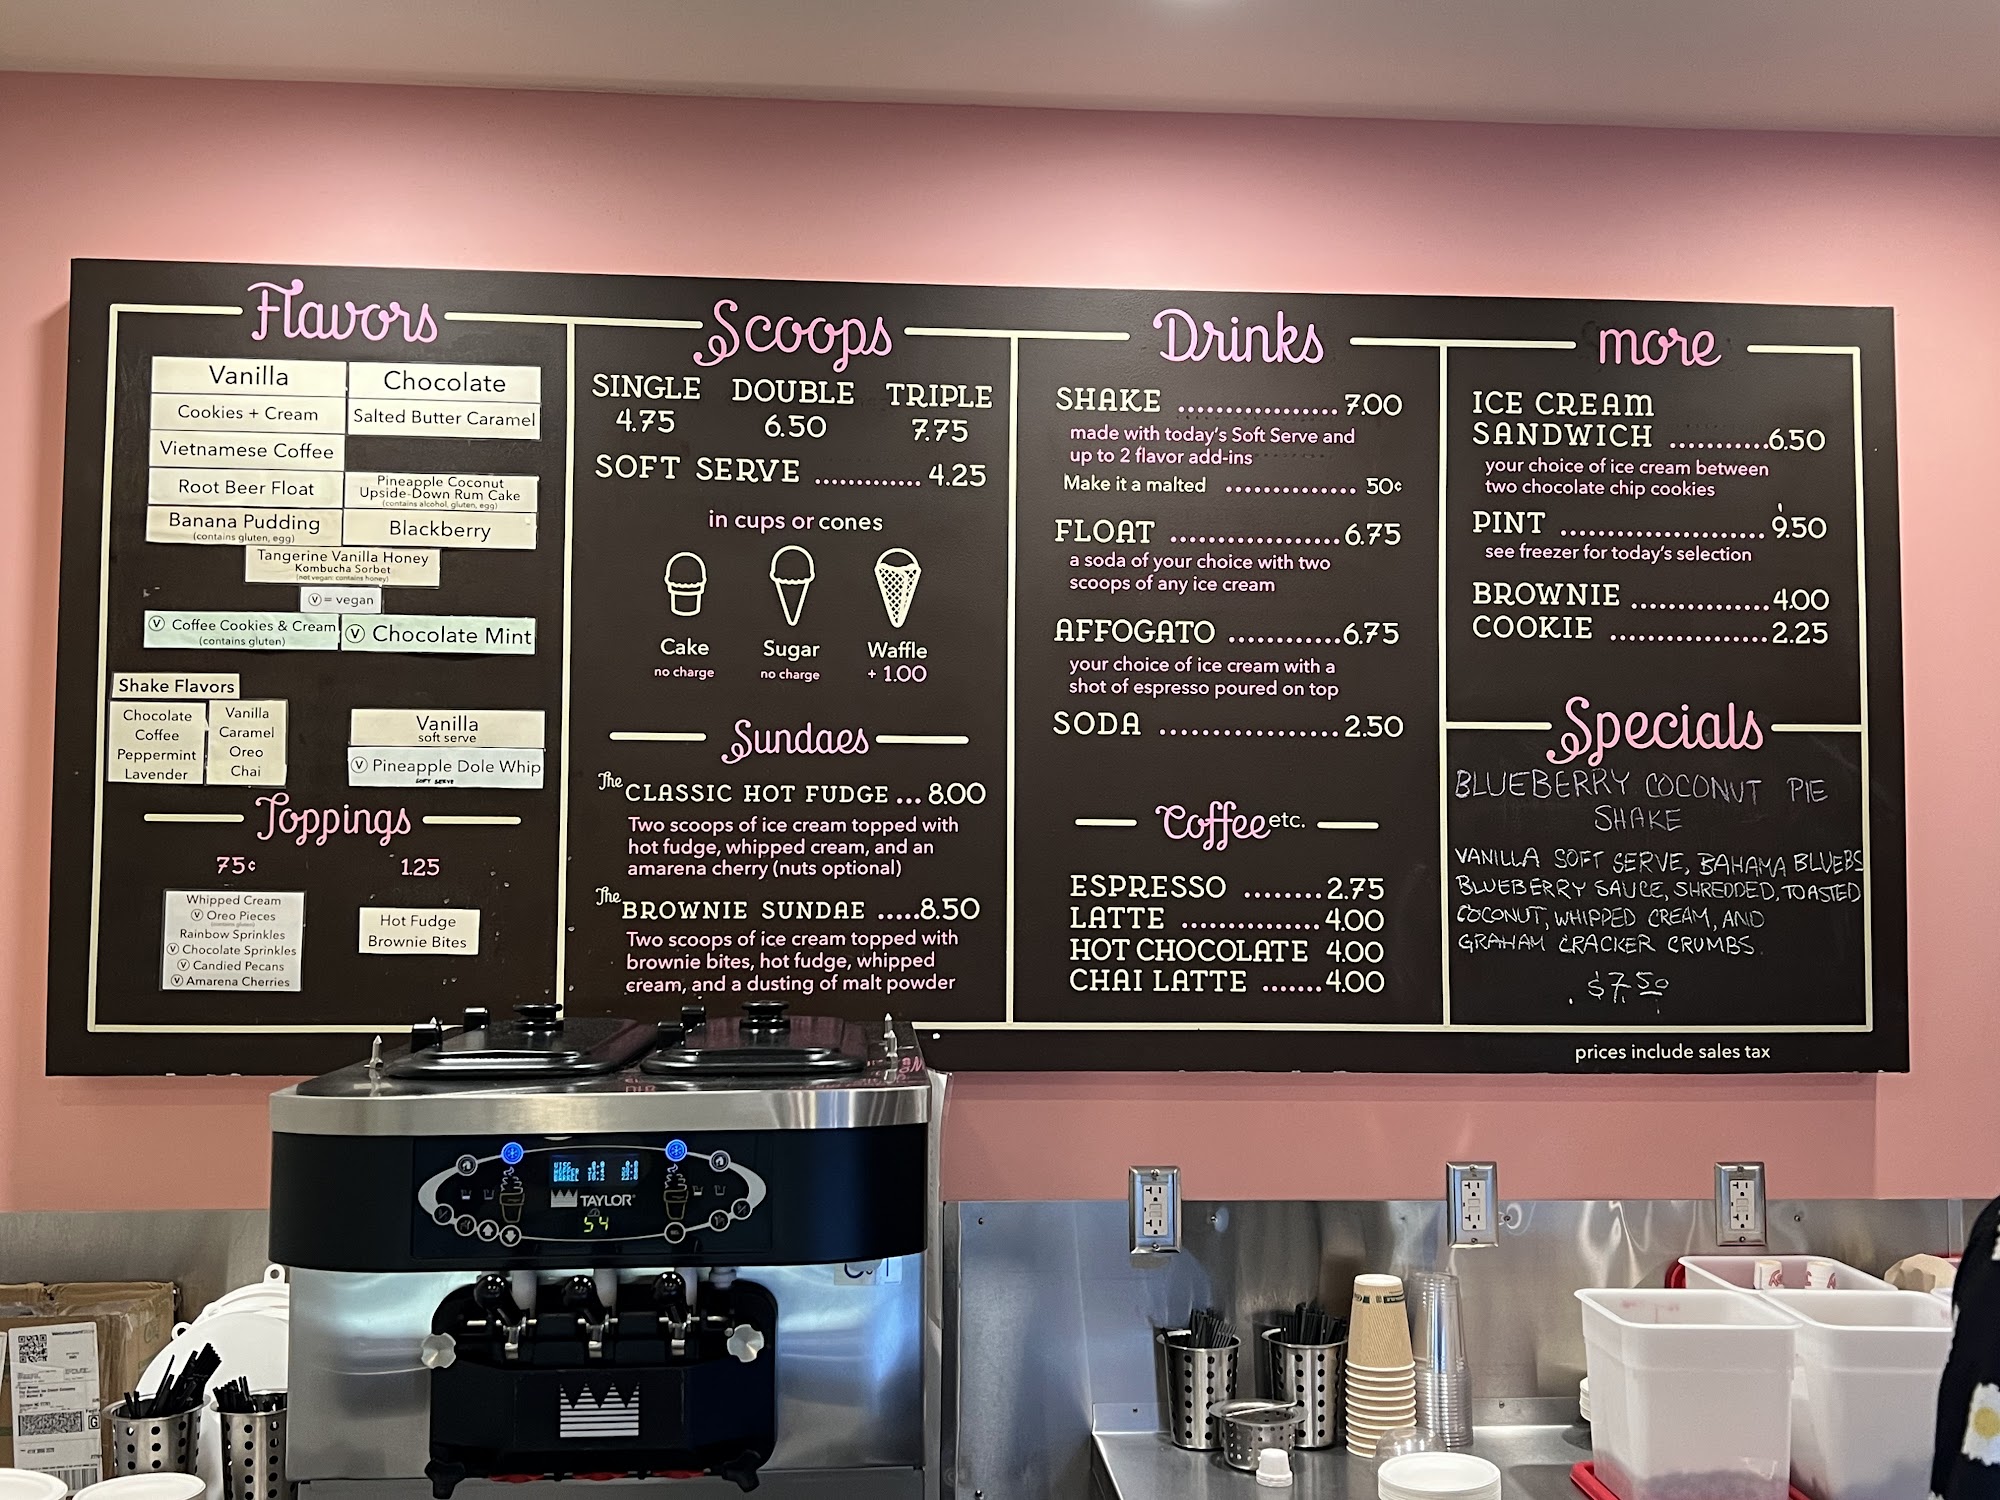 Flavors
Vanilla
Chocolate
Cookies + Cream
Salted Butter Caramel
Vietnamese Coffee
Root Beer Float
Pineapple Coconut
Upside-Down Rum Cake
(contains alcohol, gluten, egg)
Banana Pudding
(contains gluten, egg)
Blackberry
Tangerine Vanilla Honey
Kombucha Sorbet
(not vegan: contains honey)
Ⓥ = vegan
Ⓥ Coffee Cookies & Cream
(contains gluten)
Ⓥ Chocolate Mint
Shake Flavors
Chocolate
Coffee
Peppermint
Lavender
Vanilla
Caramel
Oreo
Chai
Vanilla
soft serve
Ⓥ Pineapple Dole Whip
SOFT SERVE
Toppings
75¢
Whipped Cream
Ⓥ Oreo Pieces
(contains gluten)
Rainbow Sprinkles
Ⓥ Chocolate Sprinkles
Ⓥ Candied Pecans
Ⓥ Amarena Cherries
1.25
Hot Fudge
Brownie Bites
Scoops
SINGLE DOUBLE TRIPLE
4.75 6.50 7.75
SOFT SERVE ............. 4.25
in cups or cones
Cake Sugar Waffle
no charge no charge + 1.00
Sundaes
The CLASSIC HOT FUDGE ... 8.00
Two scoops of ice cream topped with
hot fudge, whipped cream, and an
amarena cherry (nuts optional)
The BROWNIE SUNDAE .....8.50
Two scoops of ice cream topped with
brownie bites, hot fudge, whipped
cream, and a dusting of malt powder
Drinks
SHAKE .................. 7.00
made with today's Soft Serve and
up to 2 flavor add-ins
Make it a malted ............... 50¢
FLOAT ...................6.75
a soda of your choice with two
scoops of any ice cream
AFFOGATO ............6.75
your choice of ice cream with a
shot of espresso poured on top
SODA .................... 2.50
Coffee etc.
ESPRESSO ........2.75
LATTE ................4.00
HOT CHOCOLATE 4.00
CHAI LATTE .......4.00
more
ICE CREAM
SANDWICH ...........6.50
your choice of ice cream between
two chocolate chip cookies
PINT ........................ 9.50
see freezer for today's selection
BROWNIE ................4.00
COOKIE ..................2.25
Specials
BLUEBERRY COCONUT PIE
SHAKE
VANILLA SOFT SERVE, BAHAMA BLUEBS
BLUEBERRY SAUCE, SHREDDED, TOASTED
COCONUT, WHIPPED CREAM, AND
GRAHAM CRACKER CRUMBS.
$7.50
prices include sales tax
TAYLOR
54